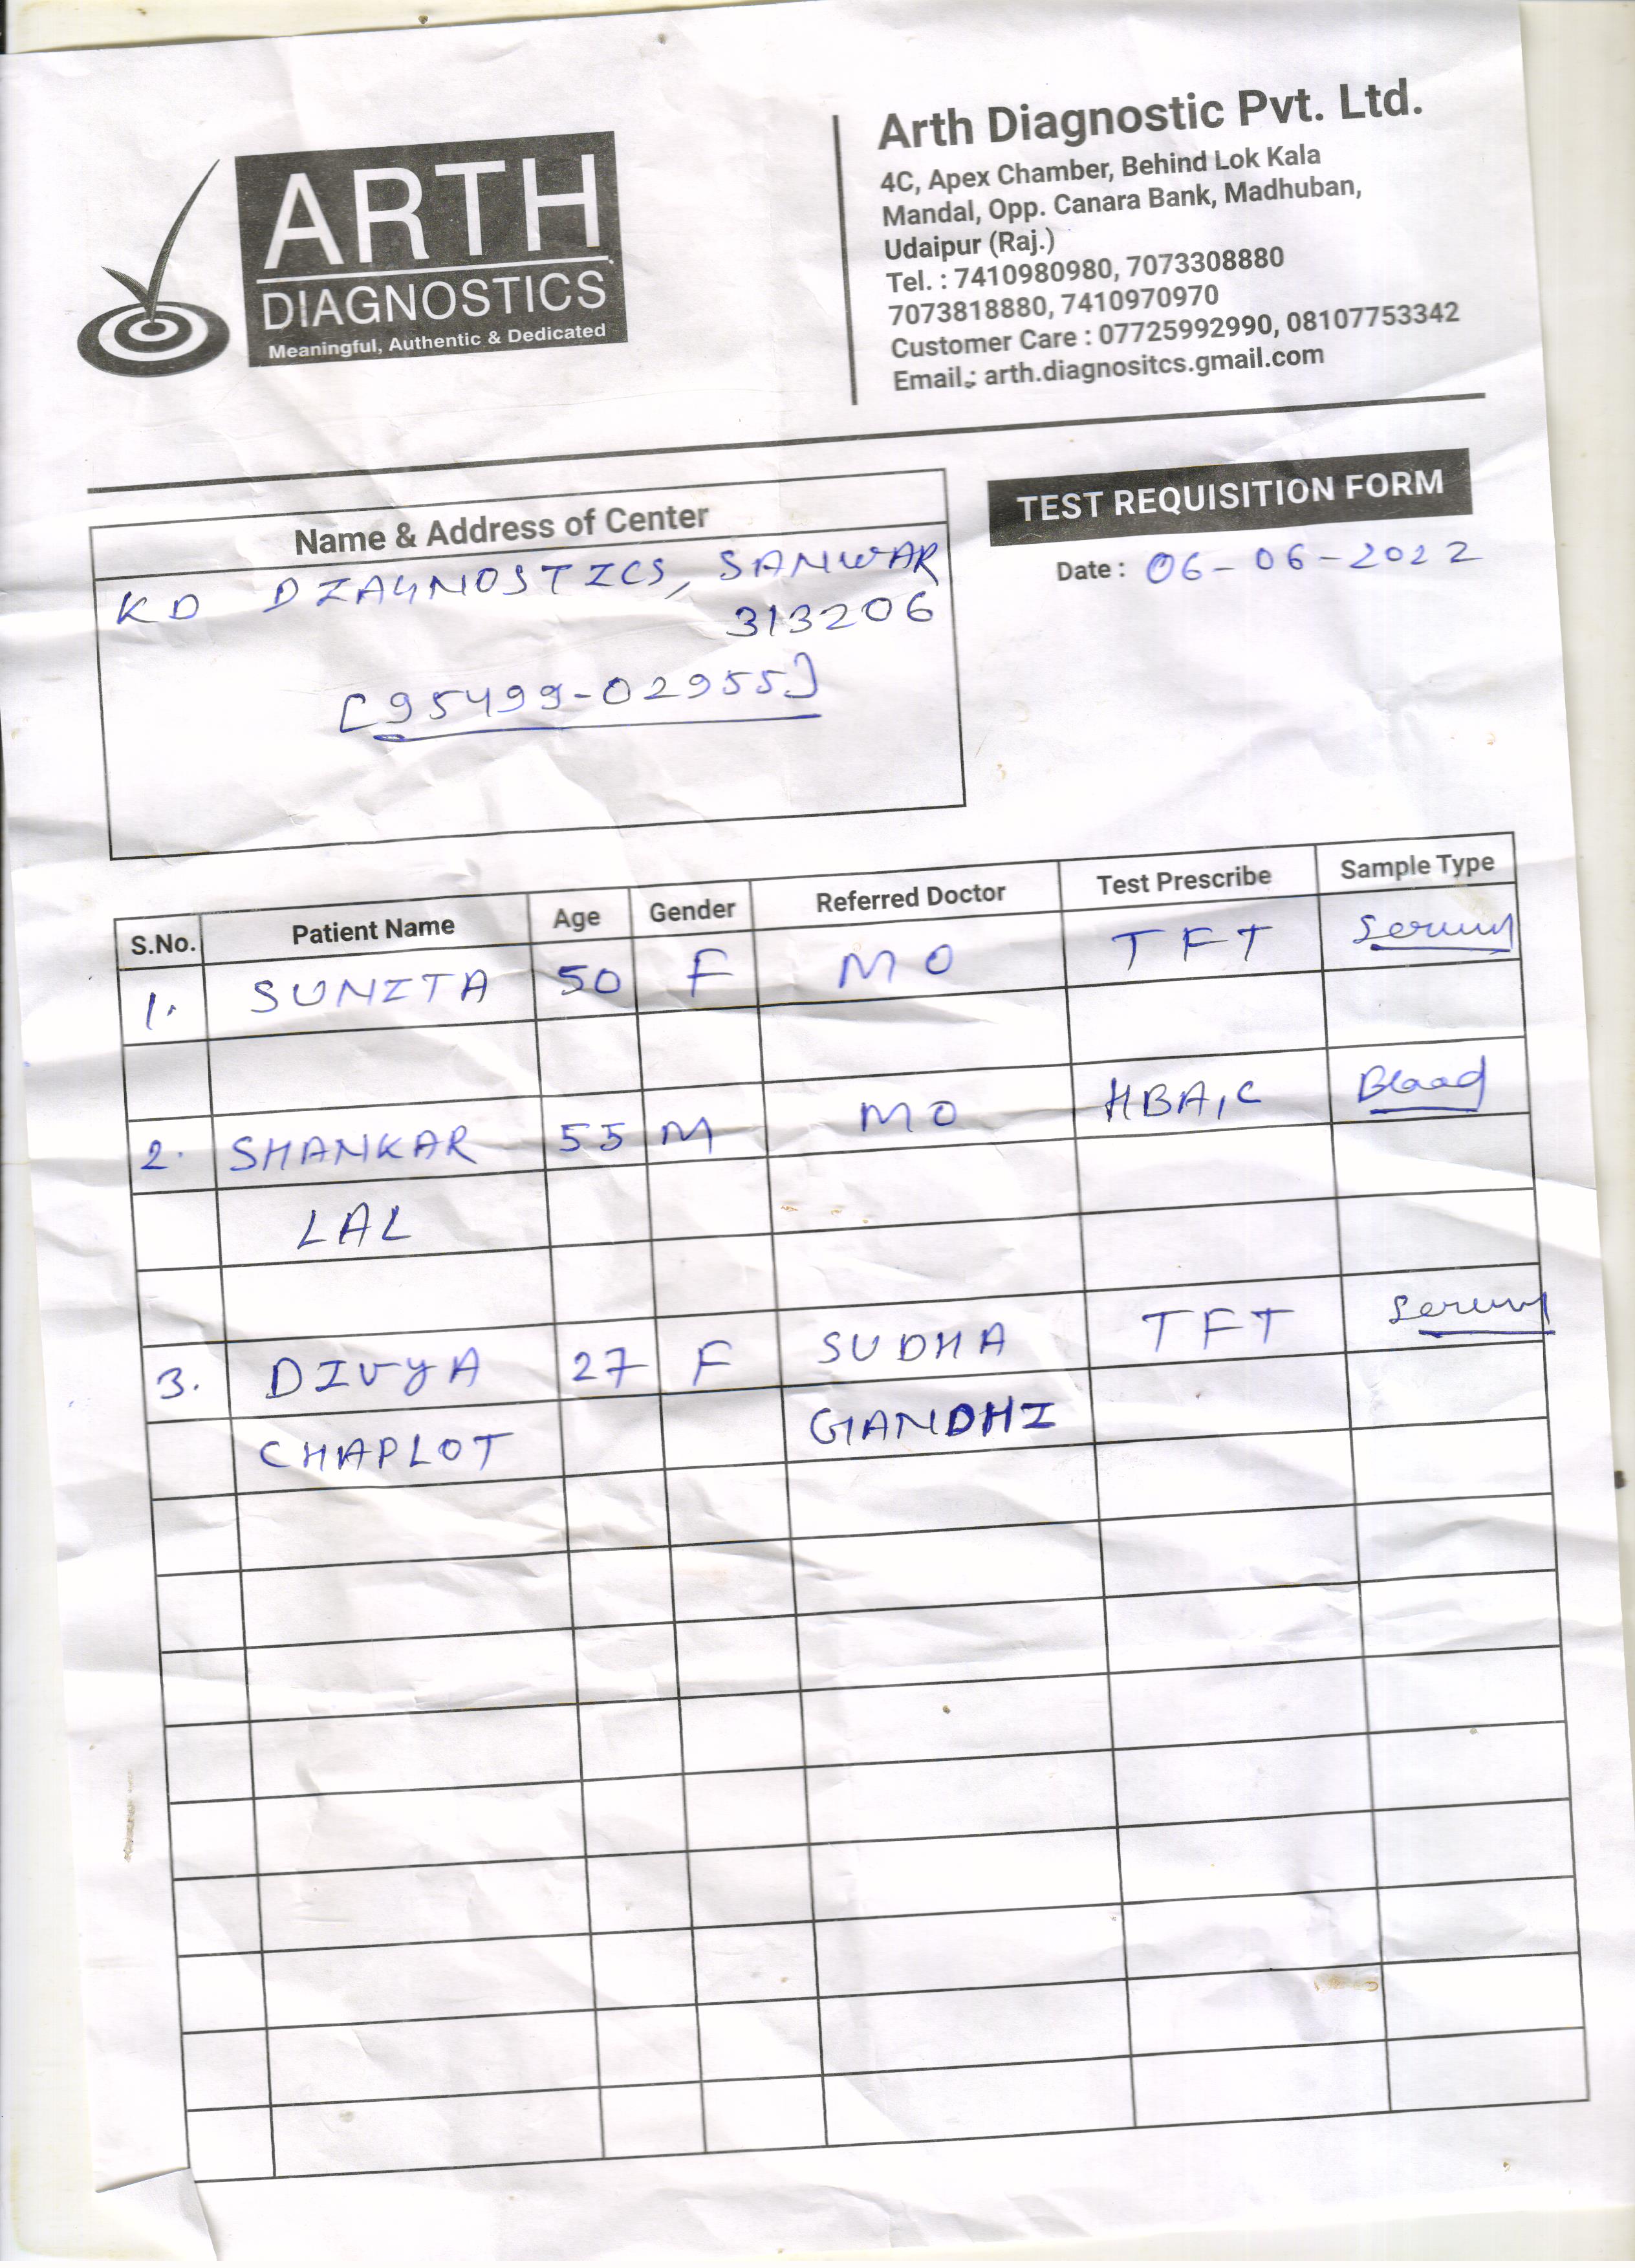 ARTH
DIAGNOSTICS
Meaningful, Authentic & Dedicated
Arth Diagnostic Pvt. Ltd.
4C, Apex Chamber, Behind Lok Kala
Mandal, Opp. Canara Bank, Madhuban,
Udaipur (Raj.)
Tel. : 7410980980, 7073308880
7073818880, 7410970970
Customer Care : 07725992990, 08107753342
Email : arth.diagnositcs.gmail.com
Name & Address of Center
KD DIAGNOSTICS, SANWAR
313206
[95499-02955]
TEST REQUISITION FORM
Date : 06-06-2022
S.No. Patient Name Age Gender Referred Doctor Test Prescribe Sample Type
1. SUNITA 50 F MO TFT Serum
2. SHANKAR 55 M MO HBA1C Blood
LAL
3. DIVYA 27 F SUDHA TFT Serum
CHAPLOT GANDHI